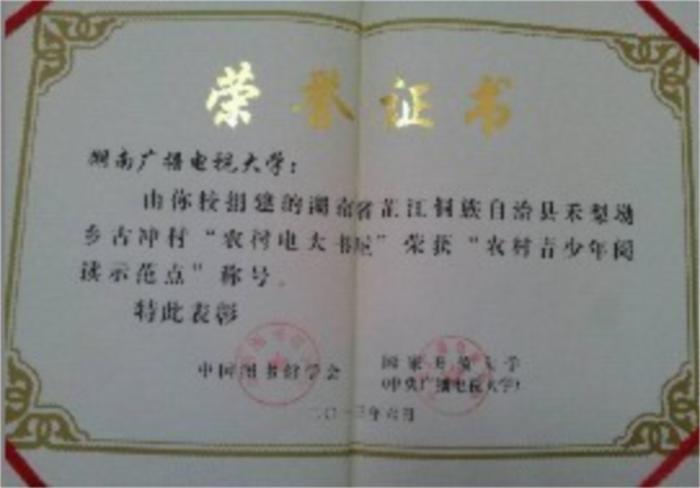 荣誉证书
湖南广播电视大学：
由你校捐建的湖南省芷江侗族自治县禾梨坳
乡古冲村“农村电大书屋”荣获“农村青少年阅
读示范点”称号。
特此表彰
中国图书馆学会 国家开放大学
(中央广播电视大学)
二〇一三年六月